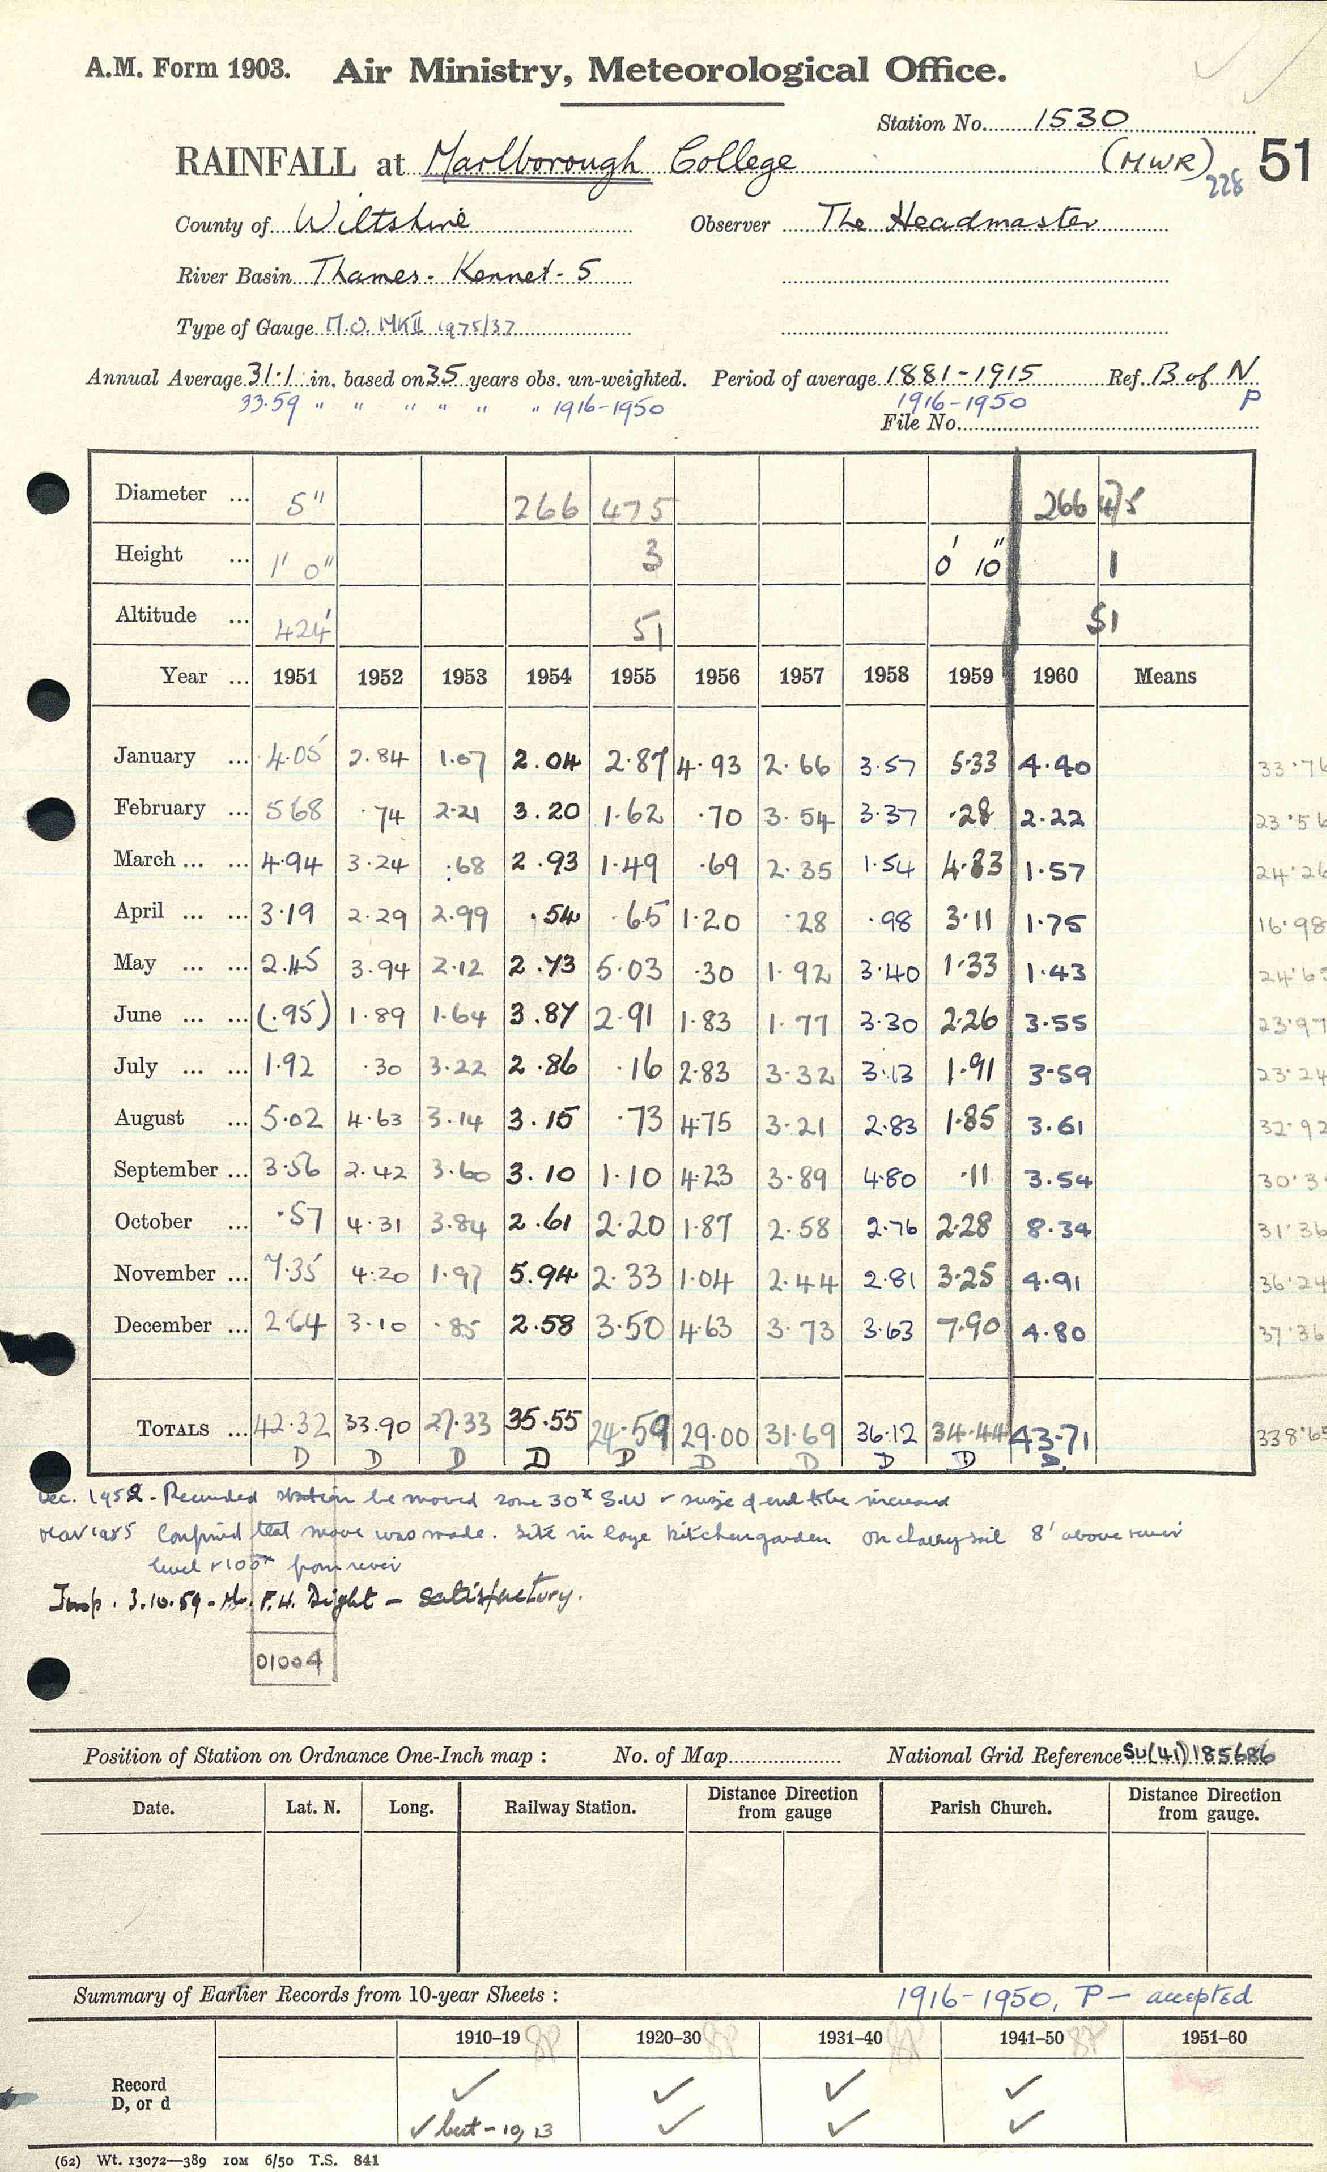 A.M. Form 1903. Air Ministry, Meteorological Office.
Station No. 1530
RAINFALL at Marlborough College (MWR) 228 51
County of Wiltshire Observer The Headmaster
River Basin Thames - Kennet - 5
Type of Gauge M.O. MKII 1975/37
Annual Average 31.1 in. based on 35 years obs. un-weighted. Period of average 1881-1915 Ref. B of N
33.59 " " " " " " 1916-1950 1916-1950 P
File No.
Diameter ... 5" 266 475 266 475
Height ... 1' 0" 3 0' 10" 1
Altitude ... 424' 51 51
Year ... 1951 1952 1953 1954 1955 1956 1957 1958 1959 1960 Means
January ... 4.05 2.84 1.07 2.04 2.87 4.93 2.66 3.57 5.33 4.40 33.76
February ... 5.68 .74 2.21 3.20 1.62 .70 3.54 3.37 .28 2.22 23.56
March ... ... 4.94 3.24 .68 2.93 1.49 .69 2.35 1.54 4.83 1.57 24.26
April ... ... 3.19 2.29 2.99 .54 .65 1.20 .28 .98 3.11 1.75 16.98
May ... ... 2.45 3.94 2.12 2.73 5.03 .30 1.92 3.40 1.33 1.43
June ... ... (.95) 1.89 1.64 3.87 2.91 1.83 1.77 3.30 2.26 3.55 23.97
July ... ... 1.92 .30 3.22 2.86 .16 2.83 3.32 3.13 1.91 3.59 23.24
August ... 5.02 4.63 3.14 3.15 .73 4.75 3.21 2.83 1.85 3.61 32.92
September ... 3.56 2.42 3.60 3.10 1.10 4.23 3.89 4.80 .11 3.54
October ... .57 4.31 3.84 2.61 2.20 1.87 2.58 2.76 2.28 8.34 31.36
November ... 7.35 4.20 1.97 5.94 2.33 1.04 2.44 2.81 3.25 4.91 36.24
December ... 2.64 3.10 .85 2.58 3.50 4.63 3.73 3.63 7.90 4.80 37.36
TOTALS ... 42.32 33.90 27.33 35.55 24.59 29.00 31.69 36.12 34.44 43.71 338.65
D D D D D D D D D D.
Dec. 1952 - Recorded station be moved some 30x S.W be increased
Mar 1955 Confirmed that move was made. Site in large kitchen garden on chalky soil 8' above river
level + 100x from river
Insp. 3.10.59 - Mr. F.H. Dight - satisfactory.
01004
Position of Station on Ordnance One-Inch map : No. of Map National Grid Reference SU(41)185686
Date. Lat. N. Long. Railway Station. Distance Direction from gauge Parish Church. Distance Direction from gauge.
Summary of Earlier Records from 10-year Sheets : 1916-1950, P - accepted
1910-19 1920-30 1931-40 1941-50 1951-60
Record ✓ ✓ ✓ ✓
D, or d ✓ but - 10, 13 ✓ ✓ ✓
(62) Wt. 13072—389 10M 6/50 T.S. 841